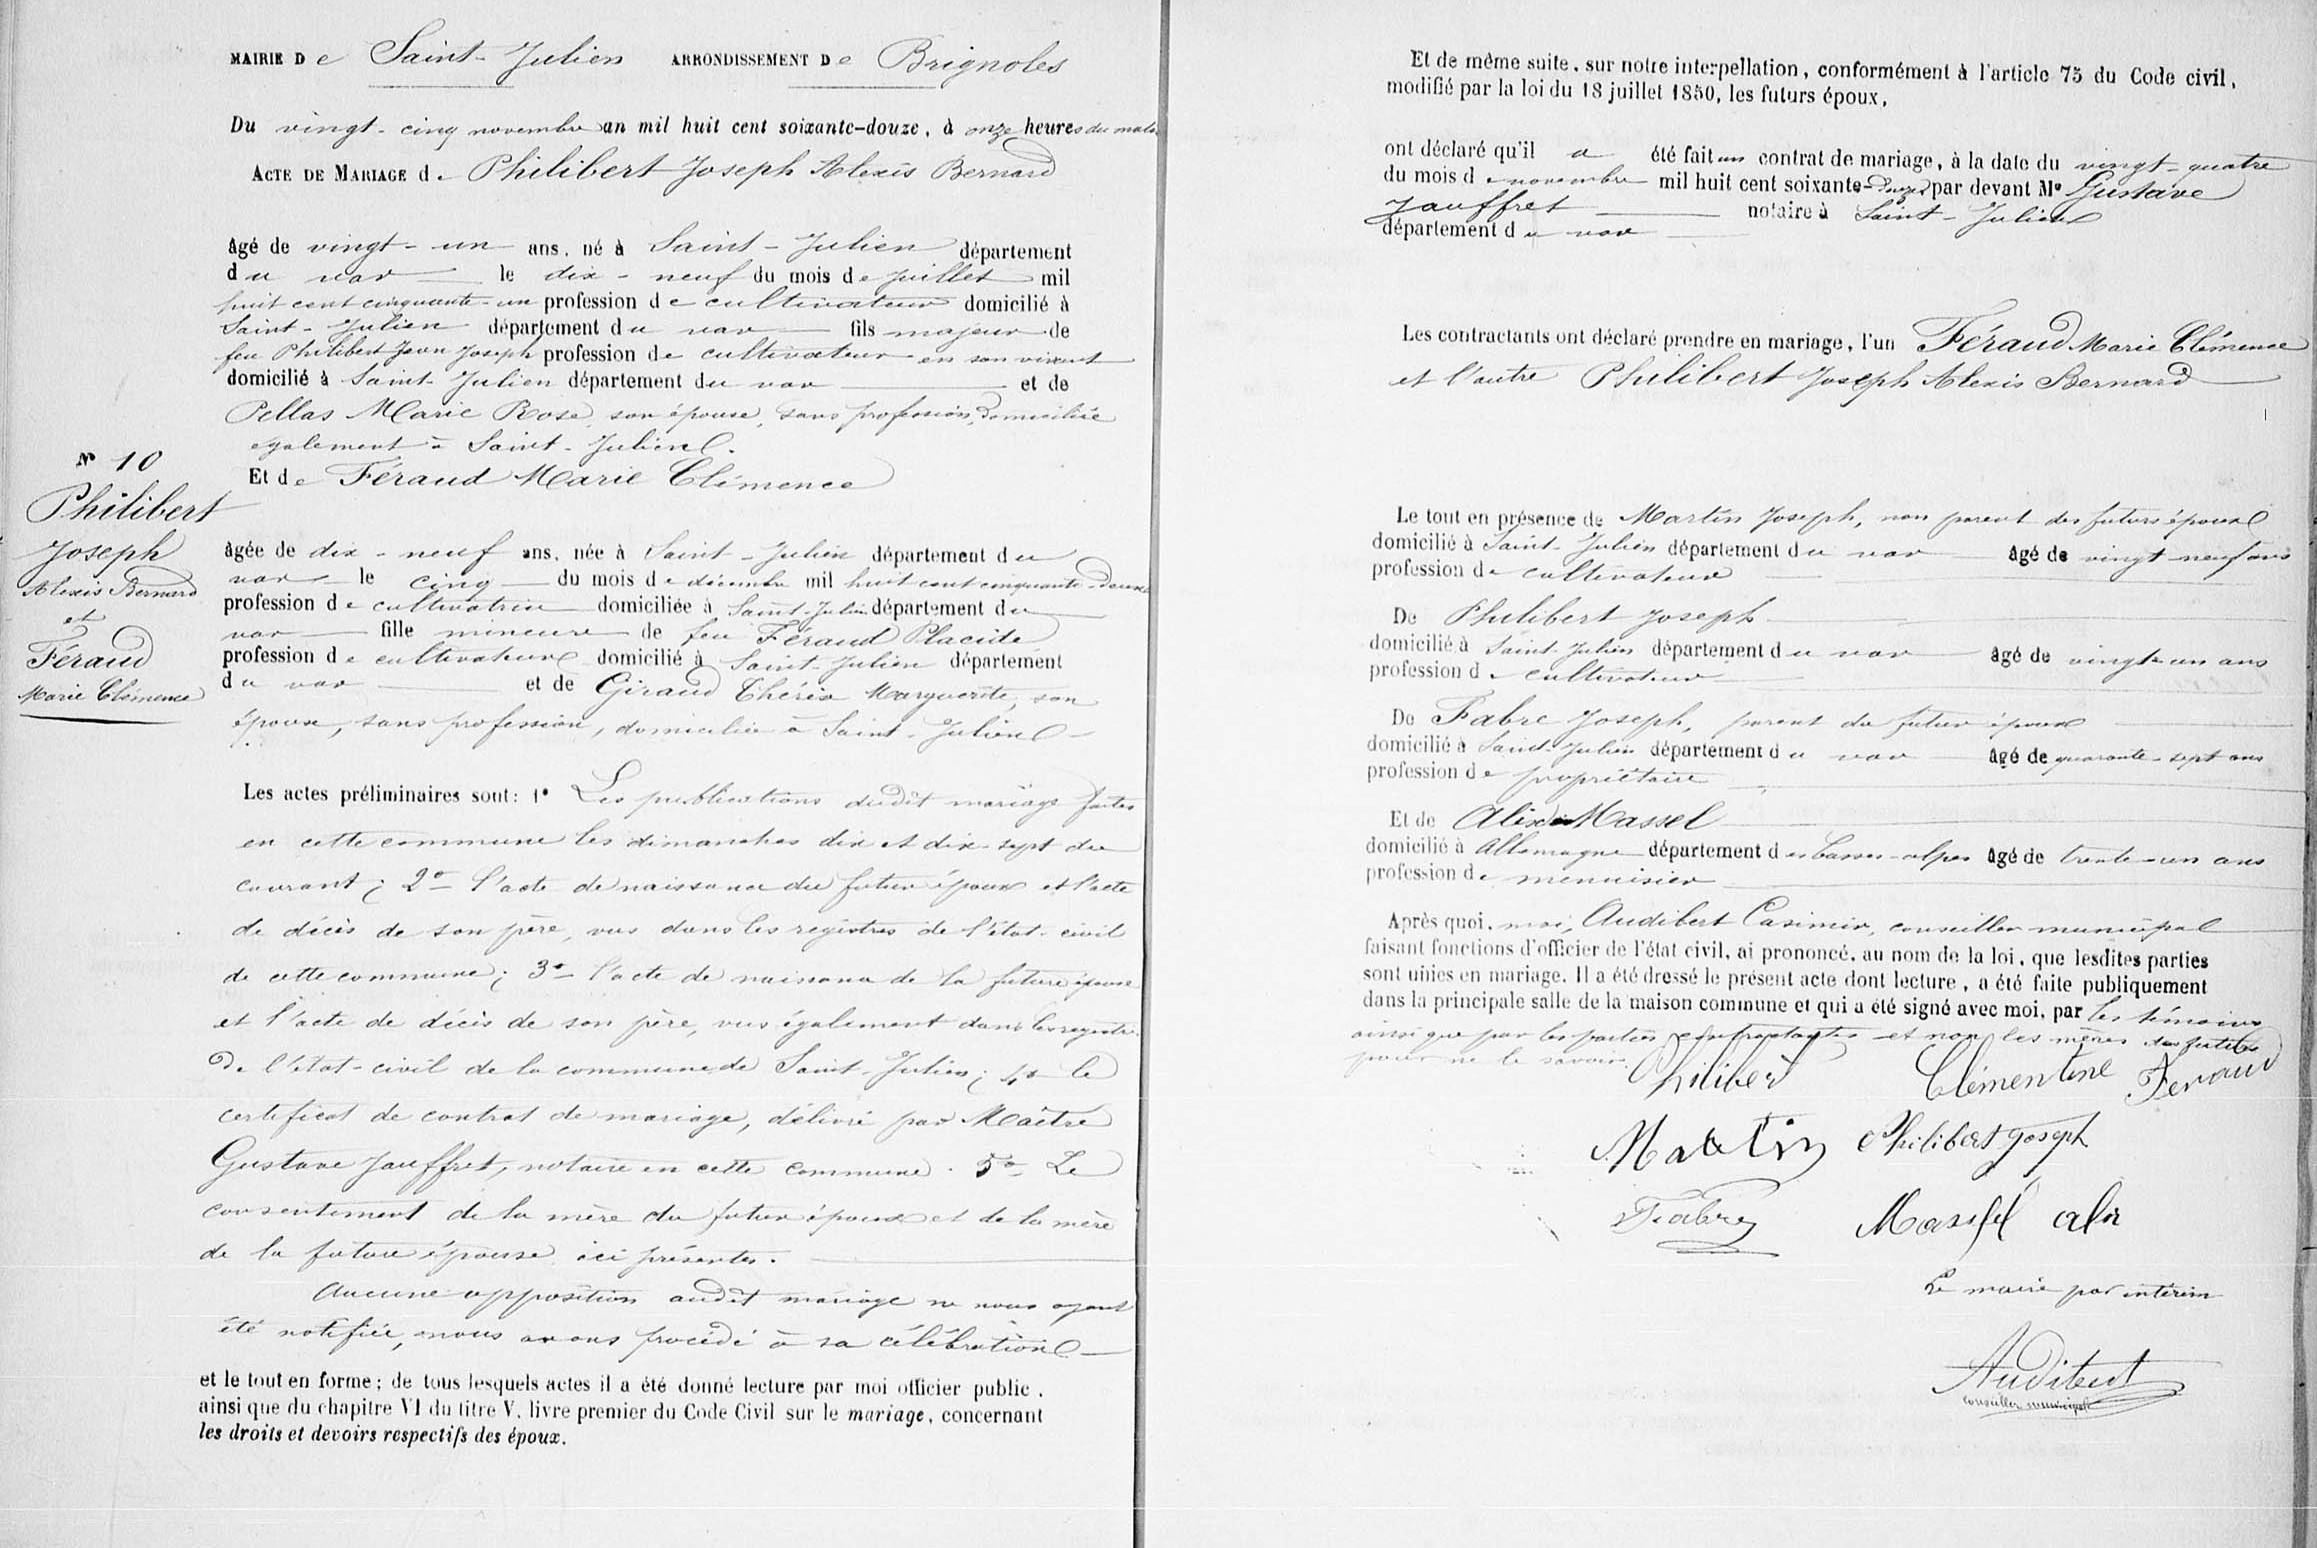 MAIRIE De Saint-Julien ARRONDISSEMENT De Brignoles
Du vingt-cinq novembre an mil huit cent soixante-douze, à onze heures du matin
ACTE DE MARIAGE de Philibert Joseph Alexis Bernard
âgé de vingt-un ans, né à Saint-Julien département
du var le dix-neuf du mois de juillet mil
huit cent cinquante-un profession de cultivateur domicilié à
Saint-Julien département du var fils majeur de
feu Philibert Jean Joseph profession de cultivateur en son vivant
domicilié à Saint-Julien département du var et de
Pellas Marie Rose, son épouse, sans profession, domiciliée
également à Saint-Julien.
Et de Féraud Marie Clémence
N° 10
Philibert
Joseph
Alexis Bernard
et
Féraud
Marie Clémence
âgée de dix-neuf ans, née à Saint-Julien département du
var le cinq du mois de décembre mil huit cent cinquante-deux
profession de cultivatrice domiciliée à Saint-Julien département du
var fille mineure de feu Féraud Placide
profession de cultivateur domicilié à Saint-Julien département
du var et de Giraud Thérèse Marguerite, son
épouse, sans profession, domiciliée à Saint-Julien
Les actes préliminaires sont: 1° Les publications dudit mariage faites
en cette commune les dimanches dix et dix-sept du
courant; 2° l'acte de naissance du futur époux et l'acte
de décès de son père, vus dans les registres de l'état-civil
de cette commune; 3° l'acte de naissance de la future épouse
et l'acte de décès de son père, vus également dans les registres
de l'état-civil de la commune de Saint-Julien; 4° le
certificat de contrat de mariage, délivré par Maître
Gustave Jauffret, notaire en cette commune. 5° Le
consentement de la mère du futur époux et de la mère
de la future épouse ici présentes.
Aucune opposition audit mariage ne nous ayant
été notifiée, nous avons procédé à sa célébration
et le tout en forme; de tous lesquels actes il a été donné lecture par moi officier public,
ainsi que du chapitre VI du titre V, livre premier du Code Civil sur le mariage, concernant
les droits et devoirs respectifs des époux.
Et de même suite, sur notre interpellation, conformément à l'article 75 du Code civil,
modifié par la loi du 18 juillet 1850, les futurs époux,
ont déclaré qu'il a été fait un contrat de mariage, à la date du vingt-quatre
du mois de novembre mil huit cent soixante-douze par devant Me Gustave
Jauffret notaire à Saint-Julien
département du var
Les contractants ont déclaré prendre en mariage, l'un Féraud Marie Clémence
et l'autre Philibert Joseph Alexis Bernard
Le tout en présence de Martin Joseph, non parent des futurs époux
domicilié à Saint-Julien département du var âgé de vingt neuf ans
profession de cultivateur
De Philibert Joseph
domicilié à Saint-Julien département du var âgé de vingt-un ans
profession de cultivateur
De Fabre Joseph, parent du futur époux
domicilié à Saint-Julien département du var âgé de quarante-sept ans
profession de propriétaire
Et de Alix Massel
domicilié à Allemagne département des basses-alpes âgé de trente-un ans
profession de menuisier
Après quoi, moi, Audibert Casimir, conseiller municipal
faisant fonctions d'officier de l'état civil, ai prononcé, au nom de la loi, que lesdites parties
sont unies en mariage. Il a été dressé le présent acte dont lecture, a été faite publiquement
dans la principale salle de la maison commune et qui a été signé avec moi, par les témoins
ainsi que par les parties contractantes et non les mères
pour ne le savoir.
Philibert Clémentine Feraud
Martin Philibert Joseph
Fabre Massel alix
Le maire par intérim
Audibert
Conseiller municipal